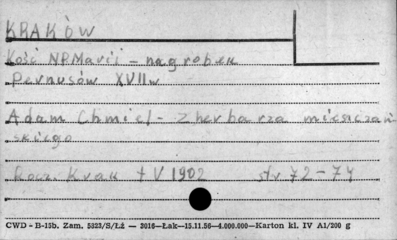 KRAKÓW
Kość NPMarii - nagrobek
Pernusów XVII w
Adam Chmiel - Z herbarza mieszczań
skiego
Rocz. Krak t V 1902 str 72-74
CWD - B-15b. Zam. 5323/S/Łź — 2016—Łak—15.11.56—4.000.000—Karton kl. IV A1/200 g